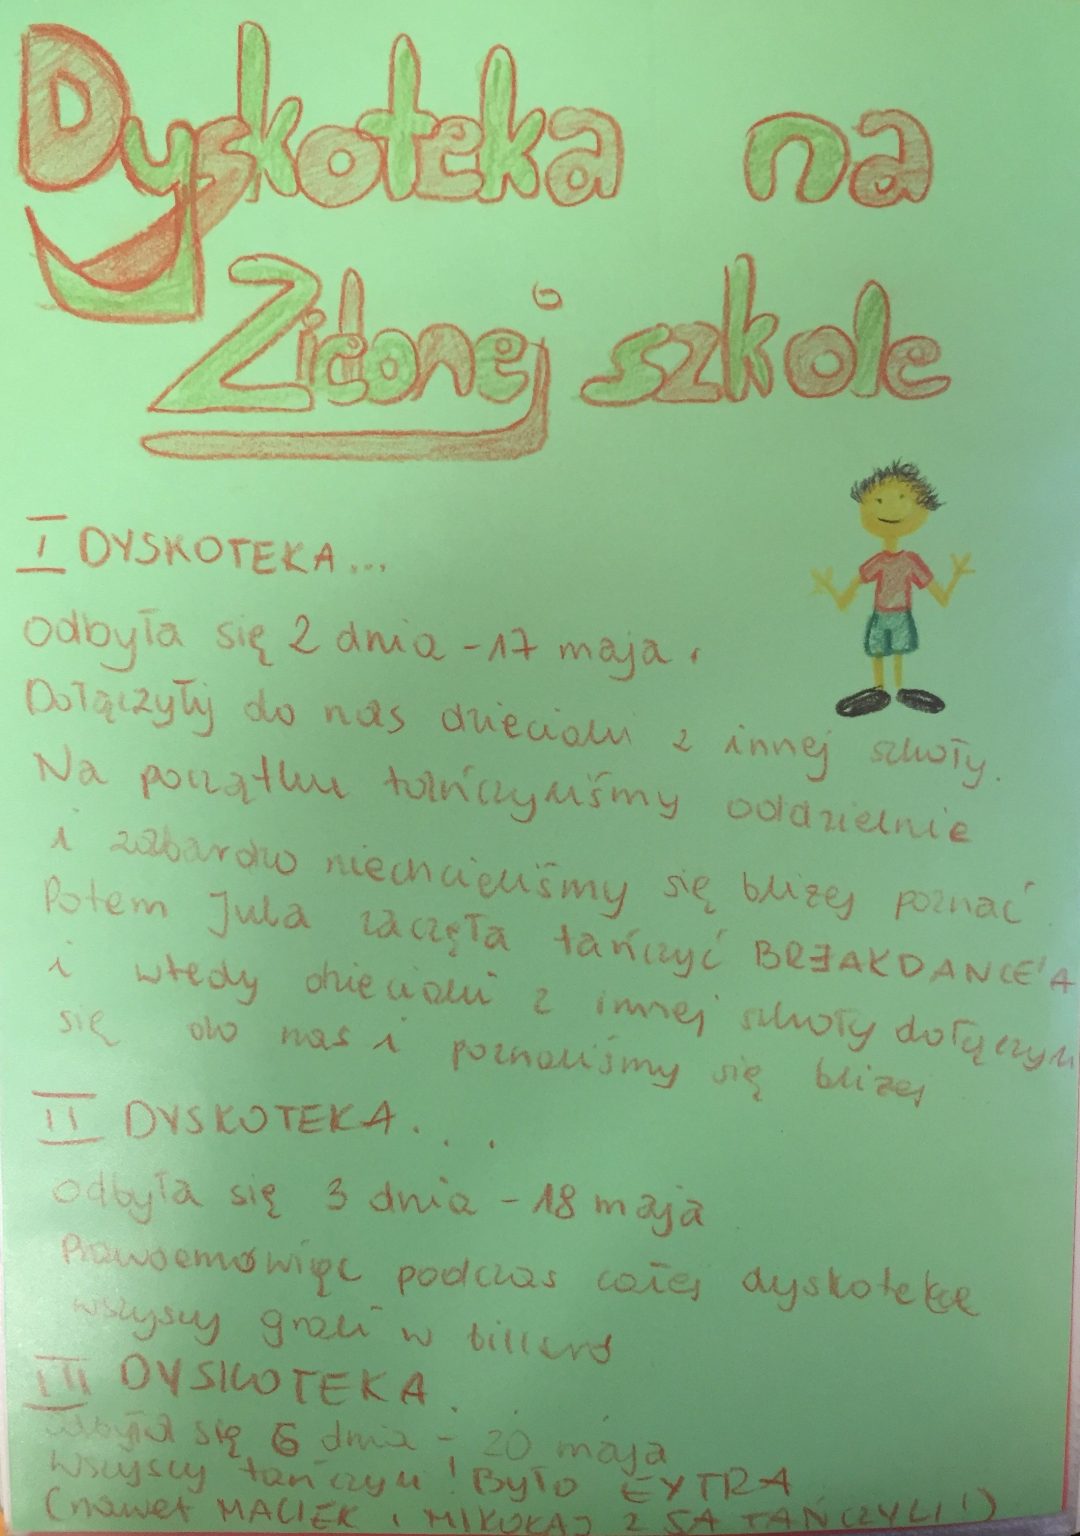 Dyskoteka na
Zielonej szkole
I DYSKOTEKA...
odbyła się 2 dnia - 17 maja.
Dołączyły do nas dzieciaki z innej szkoły.
Na początku tańczyliśmy oddzielnie
i zabardzo niechcieliśmy się bliżej poznać
Potem Jula zaczęła tańczyć BREAKDANCE'A
i wtedy dzieciaki z innej szkoły dołączyli
się do nas i poznaliśmy się bliżej
II DYSKOTEKA...
odbyła się 3 dnia - 18 maja
Prawdemówięc podczas całej dyskotekce
wszyscy grali w billard
III DYSKOTEKA.
odbyła się 6 dnia - 20 maja
Wszyscy tańczyli! Było EXTRA
(nawet MACIEK i MIKOŁAJ z 5A TAŃCZYLI!)